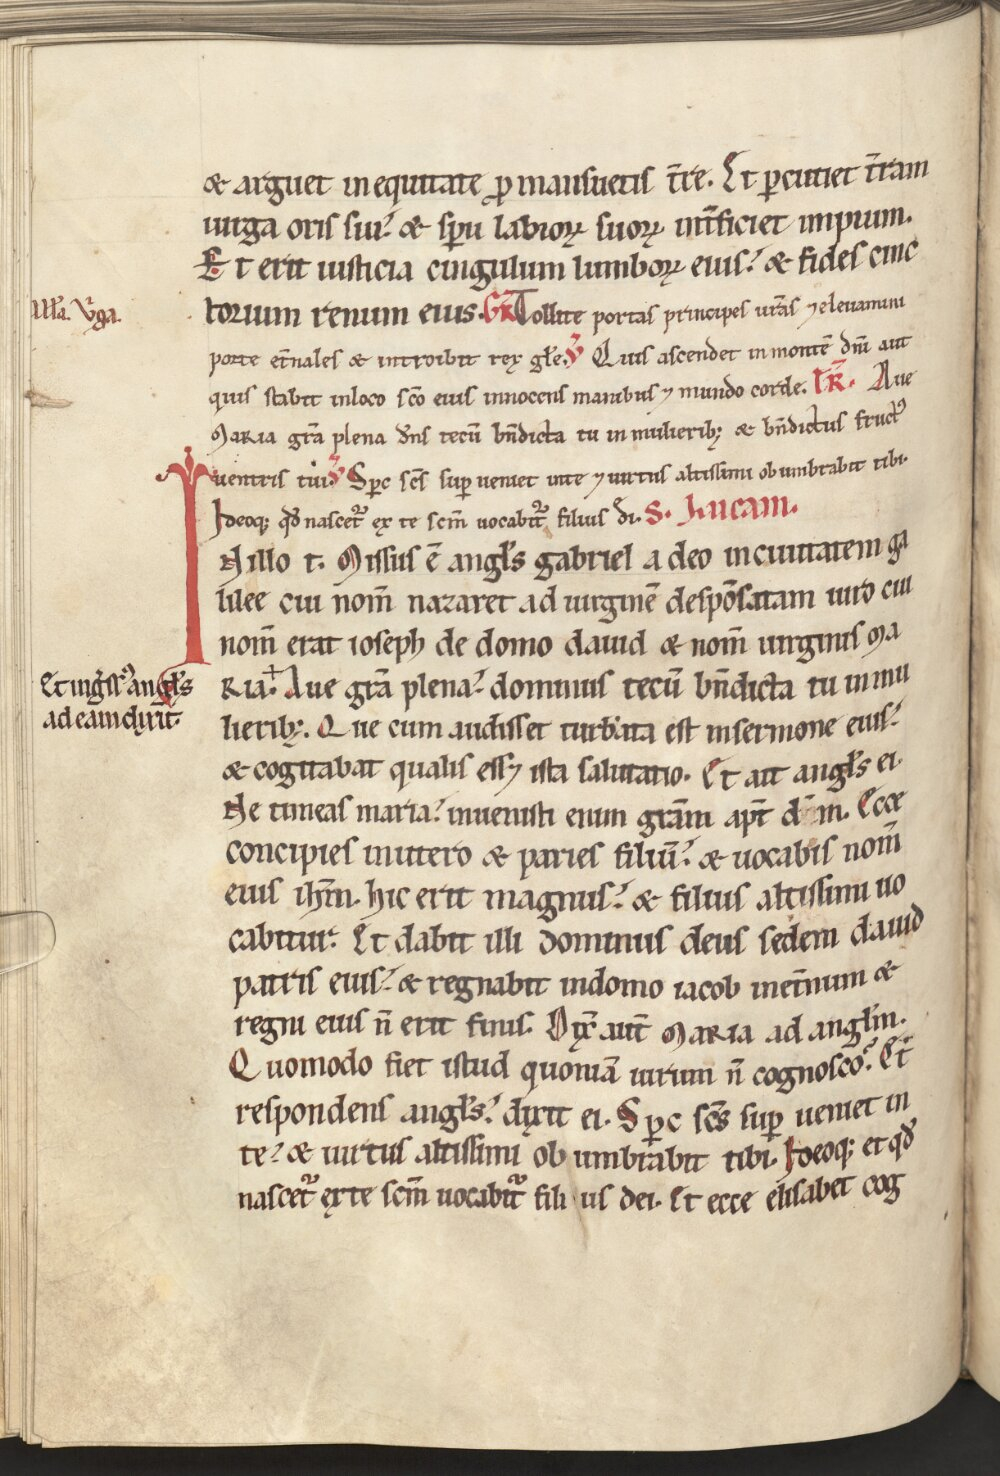 & arguet in equitate ꝓ mansuetis t̄re. Et ꝑcutiet t̄ram
uirga oris sui? & sp̄u labioꝝ suoꝝ int̄ficiet impium.
Et erit iusticia cingulum lumboꝝ eius? & fides cinc
torium renum eius. Gr̄ Tollite portas principes ur̄as ⁊ eleuamini
porte et̄nales & introibit rex gl̄e. ℣ Quis ascendet in monte dn̄i aut
quis stabit in loco sc̄o eius innocens manibus ⁊ mundo corde. Tr̄. Aue
maria gr̄a plena dn̄s tecū bn̄dicta tu in mulierib; & bn̄dictus fruct᷒
uentris tui. ℣ Sp̄c sc̄s suꝑ ueniet in te ⁊ uirtus altissimi obumbrabit tibi.
Ideoq; qd̄ nascet᷑ ex te scm̄ uocabit᷑ filius di. S. Lucam.
In illo t. Missus ē angl̄s gabriel a deo in ciuitatem ga
lilee cui nom̄ nazaret ad uirginē despōsatam uiro cui
nom̄ erat ioseph de domo dauid & nom̄ uirginis ma
Et ingr̄s᷒ angl̄s
ad eam dixit.
ria. Aue gr̄a plena? dominus tecū bn̄dicta tu in mu
lierib;. Que cum audisset turbata est in sermone eius?
& cogitabat qualis ess; ista salutatio. Et ait angl̄s ei.
Ne timeas maria? inuenisti enim gr̄am apt̄ dm̄. Ecce
concipies in utero & paries filiū? & uocabis nom̄
eius ihm̄. hic erit magnus? & filius altissimi uo
cabitur. Et dabit illi dominus deus sedem dauid
patris eius? & regnabit in domo iacob in et̄num &
regni eius n̄ erit finis. Dix̄ aut̄ maria ad angl̄m.
Quomodo fiet istud quoniā uirum n̄ cognosco? Et
respondens angl̄s? dixit ei. Sp̄c sc̄s suꝑ ueniet in
te? & uirtus altissimi obumbrabit tibi. Ideoq; et qd̄
nascet᷑ ex te scm̄ uocabit᷑ filius dei. Et ecce elisabet cog